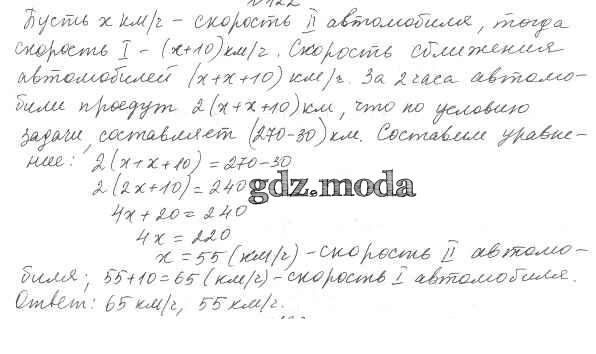 Пусть x км/ч - скорость II автомобиля, тогда
скорость I - (x+10) км/ч. Скорость сближения
автомобилей (x+x+10) км/ч. За 2 часа автомо-
били проедут 2(x+x+10) км, что по условию
задачи, составляет (270-30) км. Составим уравне-
ние: 2(x+x+10) = 270-30
2(2x+10) = 240
gdz.moda
4x+20 = 240
4x = 220
x = 55 (км/ч) - скорость II автомо-
биля; 55+10=65 (км/ч) - скорость I автомобиля.
Ответ: 65 км/ч, 55 км/ч.